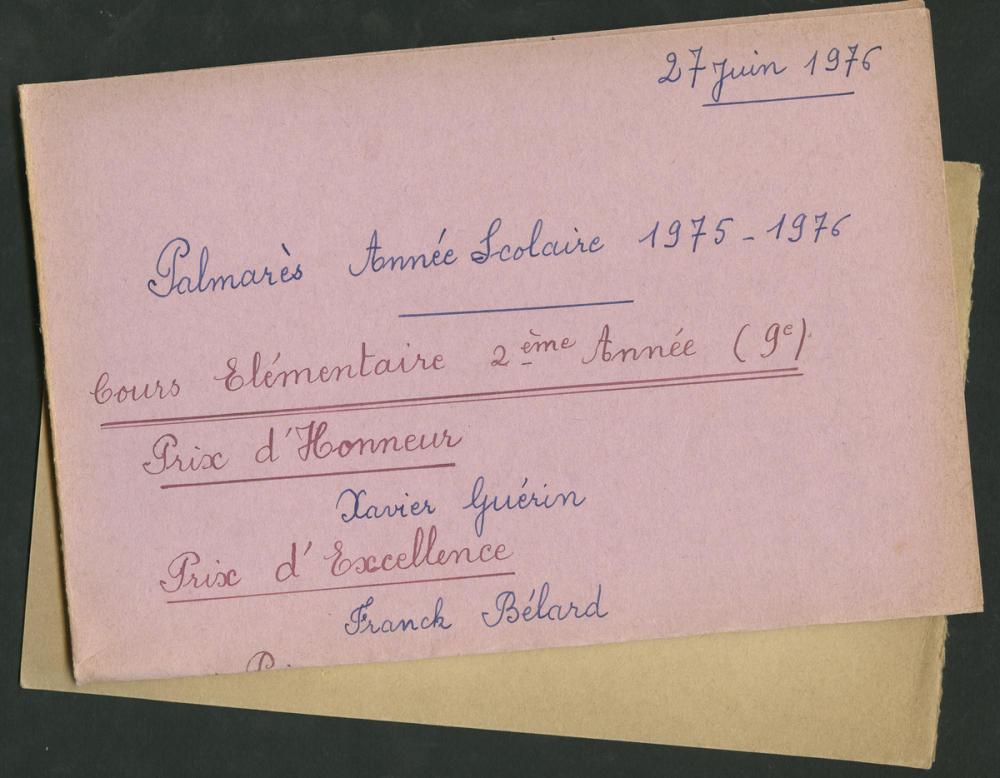 27 Juin 1976
Palmarès Année Scolaire 1975-1976
Cours Elémentaire 2ème Année (9e)
Prix d'Honneur
Xavier Guérin
Prix d'Excellence
Franck Bélard